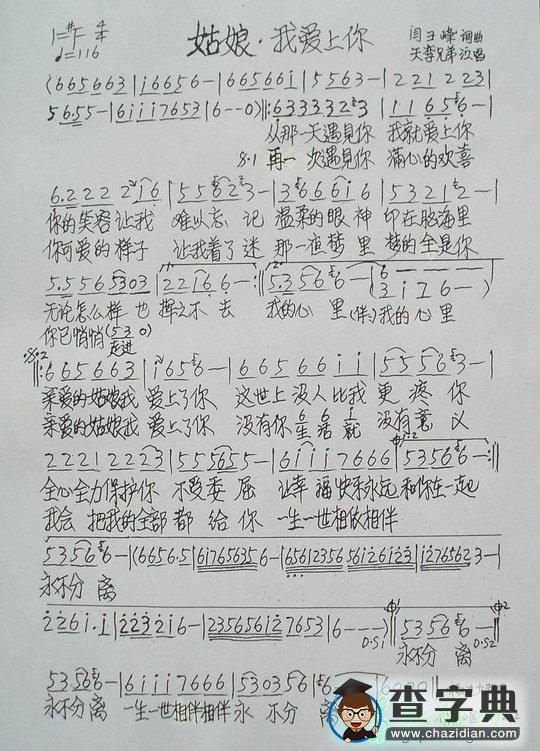 1=#F 4/4
♩=116
姑娘·我爱上你
闫玉峰 词曲
天李兄弟 演唱
(665663|i6656-|66566i|5563-|221 223|
5655-|6iii7653|6--0)‖:6333323|11656-|
从那一天遇見你 我就爱上你
8.1 再一次遇見你 滿心的欢喜
6.222 2i6|55623-|36666i6|53212-|
你的笑容让我 难以忘记 温柔的眼神 印在脑海里
你可爱的样子 让我着了迷 那一夜梦里 梦的全是你
5.5565303|22166-:‖5.3566-(6---
3i76--)
无论怎么样也 挥之不去 我的心里(伴)我的心里
你已悄悄(530)
走进
‖:665663|i656-|66566ii|55563-|
亲爱的姑娘我爱上了你 这世上没人比我更疼你
亲爱的姑娘我爱上了你 没有你生活就没有意义
2221 2223|555655-|6iii7666|53566-:‖
全心全力保护你 不受委屈 让幸福快乐永远和你在一起
我会把我的全部都给你 一生一世相依相伴
53566-|(6656.5|617656356-|
永不分离
226i.i|2232i6-|235656i27653|6---)|53566-‖
D.S1
D.S2
永不分离
53566-|6iii7666|530356|6
永不分离 一生一世相伴相伴永不分离
查字典
www.chazidian.com